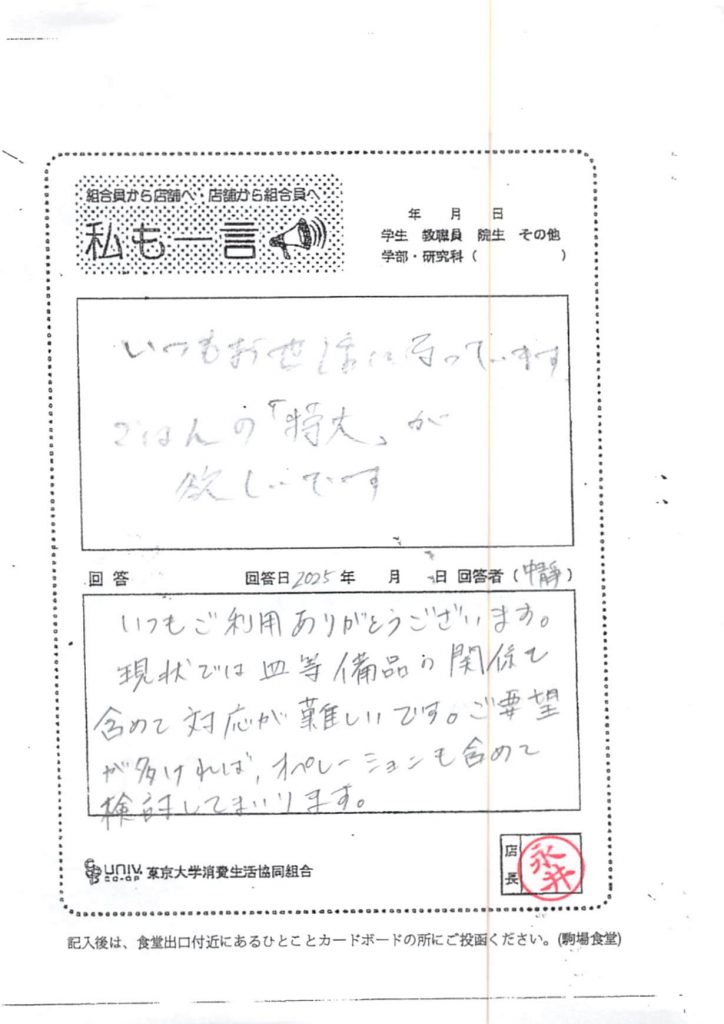 組合員から店舗へ・店舗から組合員へ
私も一言
年 月 日
学生 教職員 院生 その他
学部・研究科( )
いつもお世話になっています
ごはんの「特大」が
欲しいです
回答 回答日2025年 月 日 回答者(中静)
いつもご利用ありがとうございます。
現状では皿等備品の関係も
含めて対応が難しいです。ご要望
が多ければ、オペレーションも含めて
検討してまいります。
UNIV. CO-OP 東京大学消費生活協同組合
店長 永井
記入後は、食堂出口付近にあるひとことカードボードの所にご投函ください。(駒場食堂)